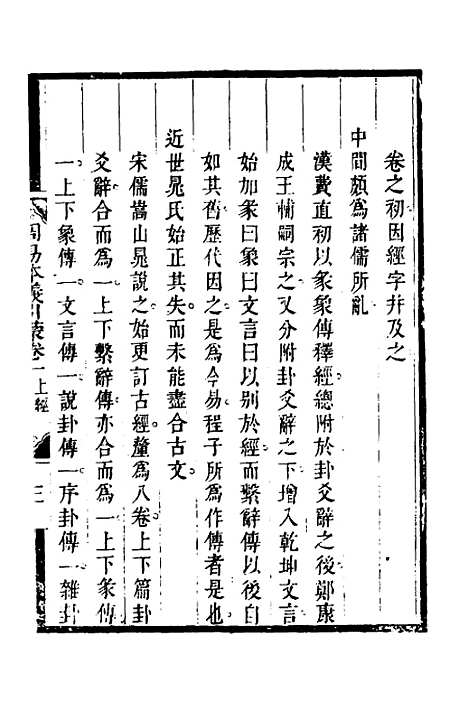 卷之初因經字幷及之
中間頗爲諸儒所亂
漢費直初以彖象傳釋經總附於卦爻辭之後鄭康
成王輔嗣宗之又分附卦爻辭之下增入乾坤文言
始加彖曰象曰文言曰以別於經而繫辭傳以後自
如其舊歷代因之是爲今易程子所爲作傳者是也
近世晁氏始正其失而未能盡合古文
宋儒嵩山晁說之始更訂古經釐爲八卷上下篇卦
爻辭合而爲一上下繫辭傳亦合而爲一上下彖傳
一上下象傳一文言傳一說卦傳一序卦傳一雜卦
周易本義引蒙卷一上經 三